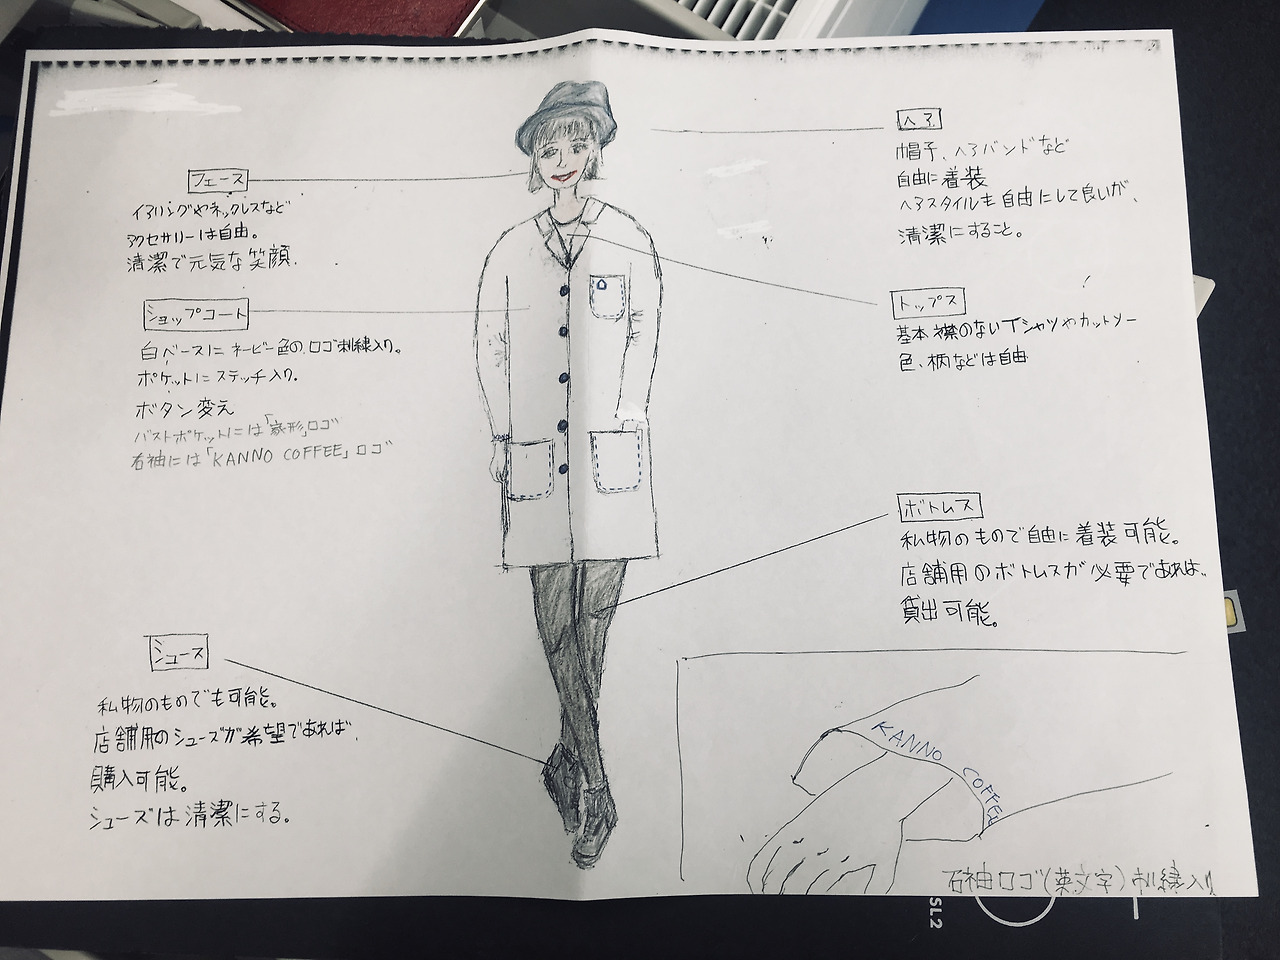 フェース
イヤリングやネックレスなど
アクセサリーは自由。
清潔で元気な笑顔.
ショップコート
白ベースにネービー色のロゴ刺繍入り。
ポケットにステッチ入り.
ボタン変え
バストポケットには「家形」ロゴ
右袖には「KANNO COFFEE」ロゴ
シューズ
私物のものでも可能。
店舗用のシューズが希望であれば、
購入可能。
シューズは清潔にする。
ヘア
帽子、ヘアバンドなど
自由に着装
ヘアスタイルも自由にして良いが、
清潔にすること。
トップス
基本襟のないTシャツやカットソー
色、柄などは自由
ボトムス
私物のもので自由に着装可能。
店舗用のボトムスが必要であれば、
貸出可能。
KANNO COFFEE
右袖ロゴ(英文字)刺繍入り
SL2